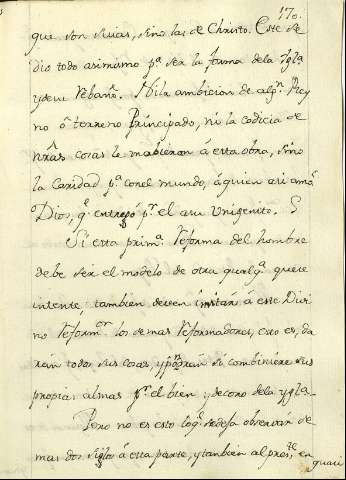 170.
que son suias, sino las de Christo. Este se
dio todo asimismo pª. ser la forma dela Yglª
y de su rebaño. Ni la ambicion de algⁿ. Rey
no ô terreno Principado, ni la codicia de
nrãs cosas le mobieron á esta obra, sino
la Caridad pª. con el mundo, á quien asi amó
Dios, qᵉ. entregó pʳ. el a su Unigenito.
Si esta primª. reforma del hombre
debe ser el modelo de otra qualqª. que se
intente, tambien deven imitár á este Divi
no reformᵒʳ. los demas reformadores, esto es, da
rán todas sus cosas, y pondrán si combiniere sus
propias almas pʳ. el bien y decoro dela yglª.
Pero no es esto loqᵉ. se dexa observár de
mas dos siglos á esta parte, y tambien al presᵗᵉ. en
quasi